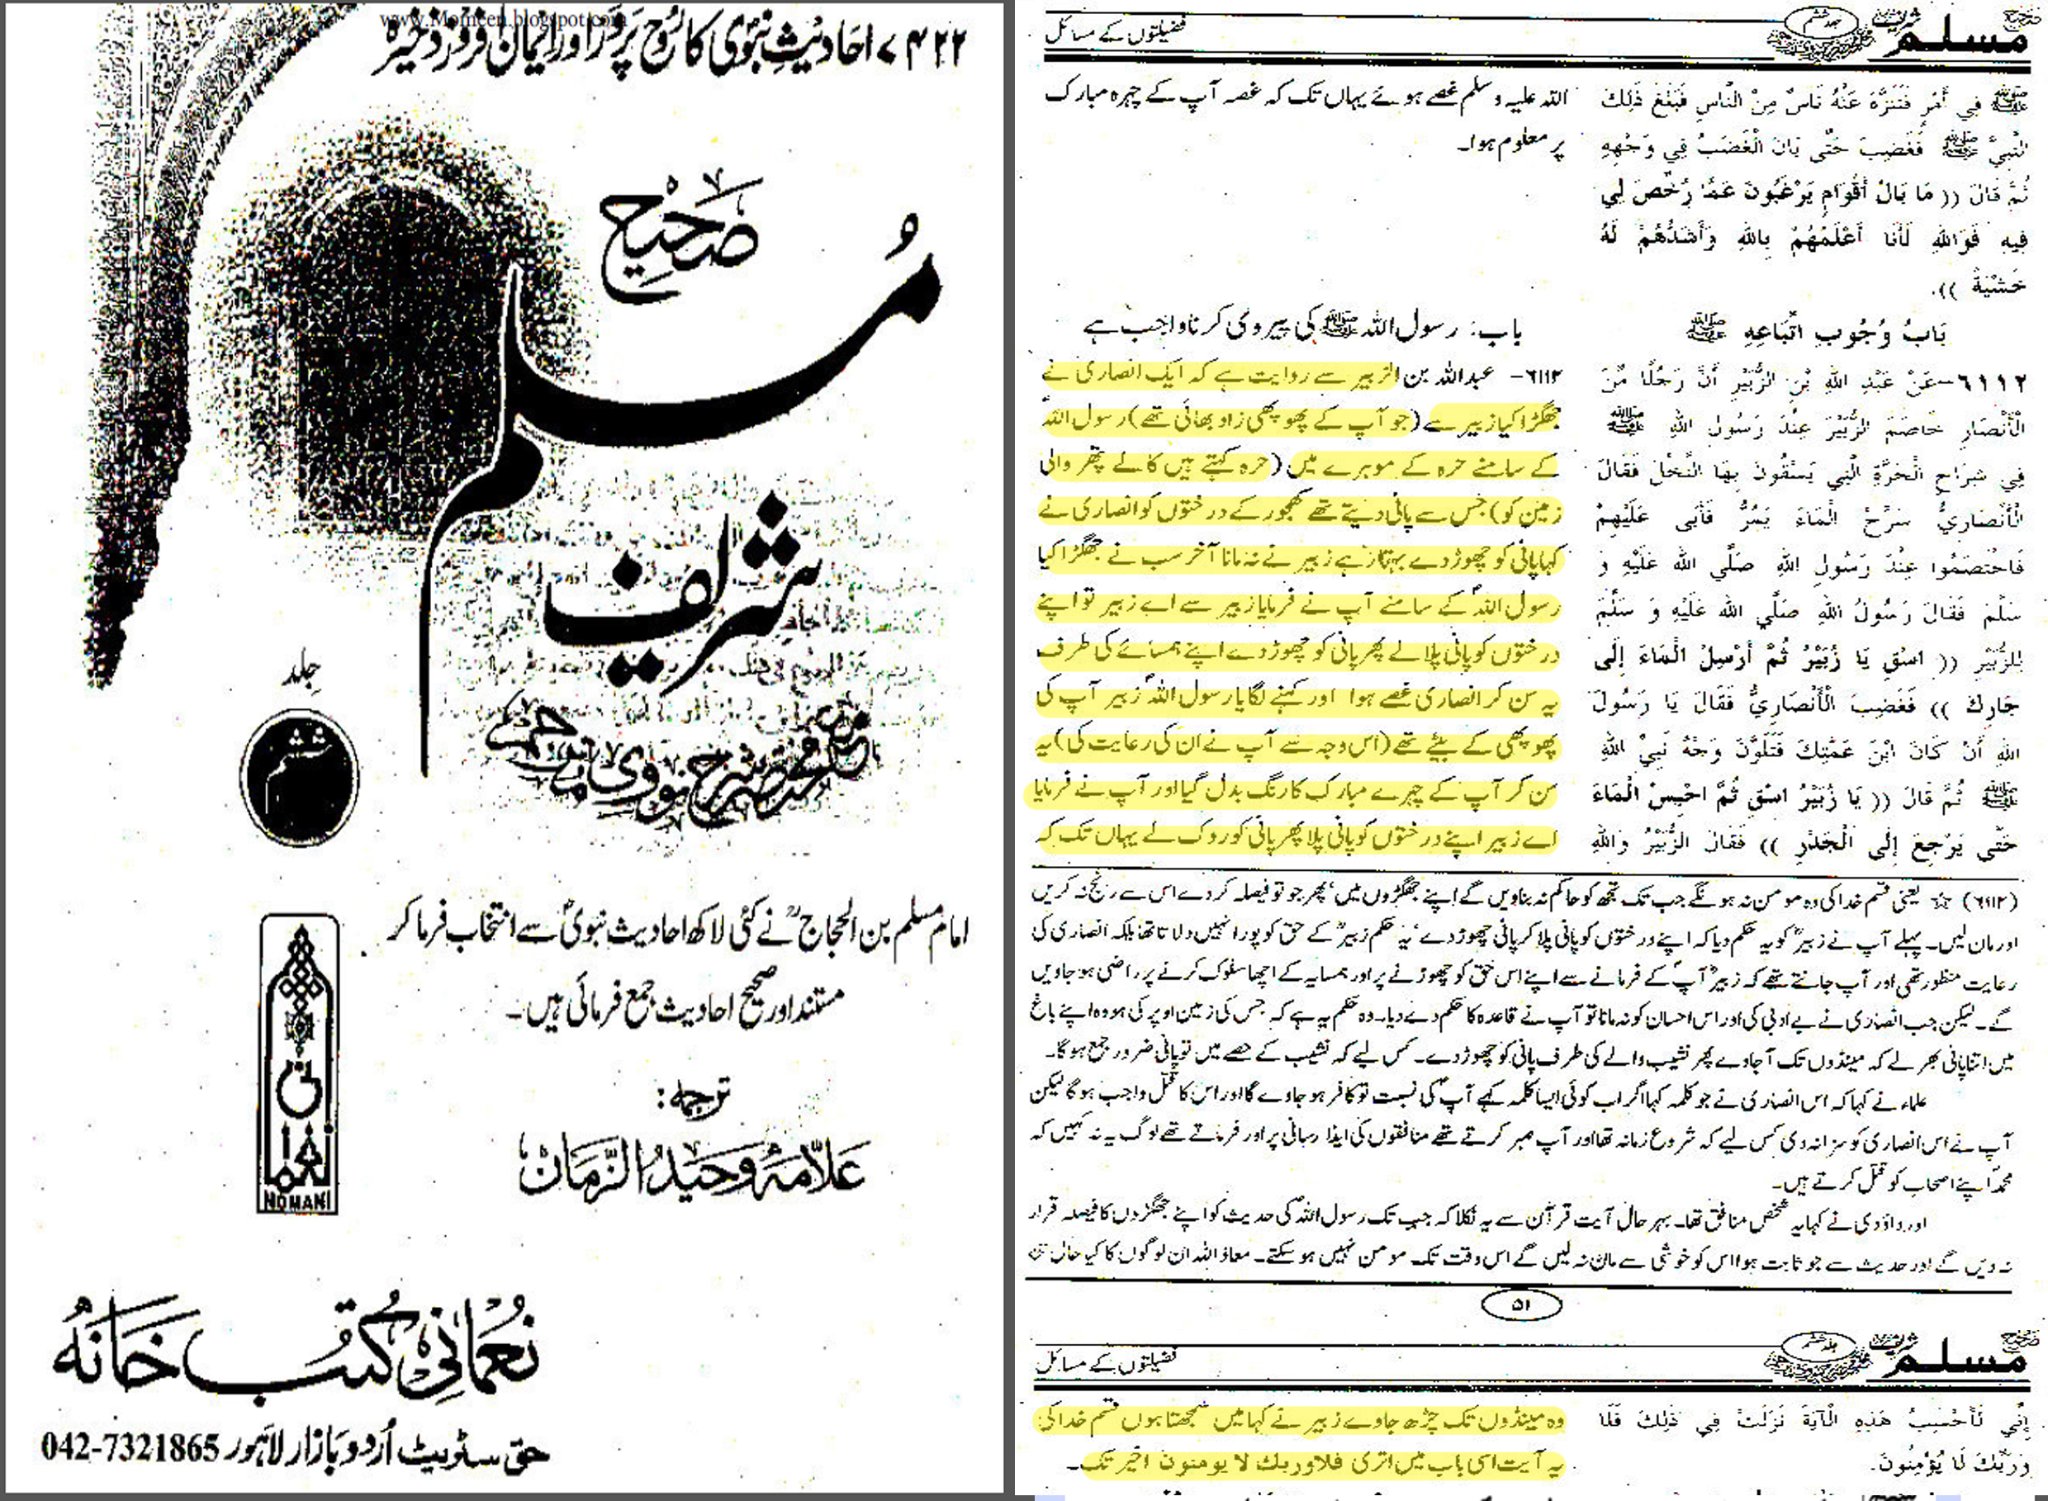 www.Momeen.blogspot.com
۷۴۲۲ احادیثِ نبوی کا رُوح پَرور اور ایمان افروز ذخیرہ
صَحِیح
مُسلم
شریف
جِلد
ششم
امام مسلم بن الحجاج نے کئی لاکھ احادیث نبوی سے انتخاب فرما کر
مستند اور صحیح احادیث جمع فرمائی ہیں۔
ترجمہ:
عَلّامَہ وَحِیدُ الزَّمَان
NOMANI
نُعمانی کُتب خَانَہ
حق سٹریٹ اُردو بازار لاہور 042-7321865
صحیح مسلم شریف جلد ششم
فضیلتوں کے مسائل
ﷺ فِي أَمْرٍ فَتَنَزَّهَ عَنْهُ نَاسٌ مِنْ النَّاسِ فَبَلَغَ ذَلِكَ
النَّبِيَّ ﷺ فَغَضِبَ حَتَّى بَانَ الْغَضَبُ فِي وَجْهِهِ
ثُمَّ قَالَ (( مَا بَالُ أَقْوَامٍ يَرْغَبُونَ عَمَّا رُخِّصَ لِي
فِيهِ فَوَاللهِ لَأَنَا أَعْلَمُهُمْ بِاللهِ وَأَشَدُّهُمْ لَهُ
خَشْيَةً )).
اللہ علیہ وسلم غصے ہوئے یہاں تک کہ غصہ آپ کے چہرہ مبارک
پر معلوم ہوا۔
بَابُ وُجُوبِ اتِّبَاعِهِ ﷺ
باب: رسول اللہ ﷺ کی پیروی کرنا واجب ہے
٦١١٢-عَنْ عَبْدِ اللهِ بْنِ الزُّبَيْرِ أَنَّ رَجُلًا مِّنَ
الْأَنْصَارِ خَاصَمَ الزُّبَيْرَ عِنْدَ رَسُولِ اللهِ ﷺ
فِي شِرَاجِ الْحَرَّةِ الَّتِي يَسْقُونَ بِهَا النَّخْلَ فَقَالَ
الْأَنْصَارِيُّ سَرِّحْ الْمَاءَ يَمُرُّ فَأَبَى عَلَيْهِمْ
فَاخْتَصَمُوا عِنْدَ رَسُولِ اللهِ صَلَّي الله عَلَيْهِ وَ
سَلَّمَ فَقَالَ رَسُولُ اللهِ صَلَّي الله عَلَيْهِ وَ سَلَّمَ
لِلزُّبَيْرِ (( اسْقِ يَا زُبَيْرُ ثُمَّ أَرْسِلْ الْمَاءَ إِلَى
جَارِكَ )) فَغَضِبَ الْأَنْصَارِيُّ فَقَالَ يَا رَسُولَ
اللهِ أَنْ كَانَ ابْنَ عَمَّتِكَ فَتَلَوَّنَ وَجْهُ نَبِيِّ اللهِ
ﷺ ثُمَّ قَالَ (( يَا زُبَيْرُ اسْقِ ثُمَّ احْبِسْ الْمَاءَ
حَتَّى يَرْجِعَ إِلَى الْجَدْرِ )) فَقَالَ الزُّبَيْرُ وَاللهِ
۶۱۱۲- عبداللہ بن الزبیر سے روایت ہے کہ ایک انصاری نے
جھگڑا کیا زبیر سے (جو آپ کے پھوپھی زاد بھائی تھے) رسول اللہ
کے سامنے حرہ کے موہرے میں (حرہ کہتے ہیں کالے پتھر والی
زمین کو) جس سے پانی دیتے تھے کھجور کے درختوں کو انصاری نے
کہا پانی کو چھوڑ دے بہتا رہے زبیر نے نہ مانا آخر سب نے جھگڑا کیا
رسول اللہ کے سامنے آپ نے فرمایا زبیر سے اے زبیر تو اپنے
درختوں کو پانی پلا لے پھر پانی کو چھوڑ دے اپنے ہمسائے کی طرف
یہ سن کر انصاری غصے ہوا اور کہنے لگا یا رسول اللہ زبیر آپ کی
پھوپھی کے بیٹے تھے (اس وجہ سے آپ نے ان کی رعایت کی) یہ
سن کر آپ کے چہرے مبارک کا رنگ بدل گیا اور آپ نے فرمایا
اے زبیر اپنے درختوں کو پانی پلا پھر پانی کو روک لے یہاں تک کہ
(۶۱۱۲) ☆ یعنی قسم خدا کی وہ مومن نہ ہونگے جب تک تجھ کو حاکم نہ بناویں گے اپنے جھگڑوں میں' پھر جو تو فیصلہ کردے اس سے رنج نہ کریں
اور مان لیں۔ پہلے آپ نے زبیر کو یہ حکم دیا کہ اپنے درختوں کو پانی پلا کر پانی چھوڑ دے' یہ حکم زبیر کے حق کو پورا نہیں دلاتا تھا بلکہ انصاری کی
رعایت منظور تھی اور آپ جانتے تھے کہ زبیر آپ کے فرمانے سے اپنے اس حق کو چھوڑنے پر اور ہمسایہ کے اچھا سلوک کرنے پر راضی ہو جاویں
گے۔ لیکن جب انصاری نے بے ادبی کی اور اس احسان کو نہ مانا تو آپ نے قاعدہ کا حکم دے دیا۔ وہ حکم یہ ہے کہ جس کی زمین اوپر کی ہو وہ اپنے باغ
میں اتنا پانی بھر لے کہ مینڈوں تک آ جاوے پھر نشیب والے کی طرف پانی کو چھوڑ دے۔ کس لیے کہ نشیب کے حصے میں تو پانی ضرور جمع ہوگا۔
علماء نے کہا کہ اس انصاری نے جو کلمہ کہا اگر اب کوئی ایسا کلمہ کہے آپ کی نسبت تو کافر ہو جاوے گا اور اس کا قتل واجب ہوگا لیکن
آپ نے اس انصاری کو سزا نہ دی کس لیے کہ شروع زمانہ تھا اور آپ صبر کرتے تھے منافقوں کی ایذا رسانی پر اور فرماتے تھے لوگ یہ نہ کہیں کہ
محمد اپنے اصحاب کو قتل کرتے ہیں۔
اور داؤدی نے کہا یہ شخص منافق تھا۔ بہر حال آیت قرآن سے یہ نکلا کہ جب تک رسول اللہ کی حدیث کو اپنے جھگڑوں کا فیصلہ قرار
نہ دیں گے اور حدیث سے جو ثابت ہوا اس کو خوشی سے مان نہ لیں گے اس وقت تک مومن نہیں ہو سکتے۔ معاذ اللہ ان لوگوں کا کیا حال
۵۱
صحیح مسلم شریف جلد ششم
فضیلتوں کے مسائل
إِنِّي لَأَحْسِبُ هَذِهِ الْآيَةَ نَزَلَتْ فِي ذَلِكَ فَلَا
وَرَبِّكَ لَا يُؤْمِنُونَ.
وہ مینڈوں تک چڑھ جاوے زبیر نے کہا میں سمجھتا ہوں قسم خدا کی
یہ آیت اسی باب میں اتری فلا وربك لا يومنون اخیر تک۔